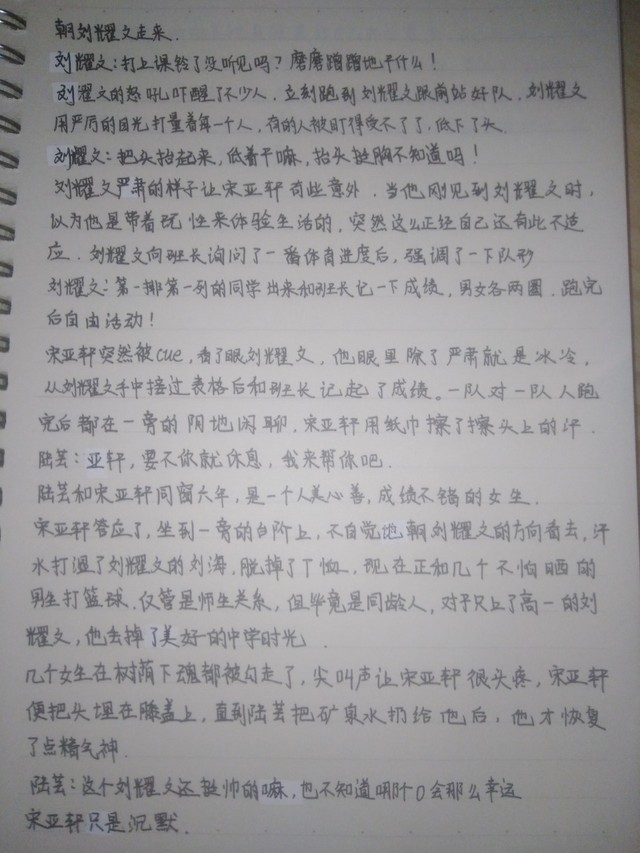 朝刘耀文走来.
刘耀文:打上课铃了没听见吗?磨磨蹭蹭地干什么!
刘耀文的怒吼吓醒了不少人,立刻跑到刘耀文跟前站好队.刘耀文
用严厉的目光打量着每一个人,有的人被盯得受不了了,低下了头.
刘耀文:把头抬起来,低着干嘛,抬头挺胸不知道吗!
刘耀文严肃的样子让宋亚轩有些意外.当他刚见到刘耀文时,
以为他是带着玩性来体验生活的,突然这么正经自己还有此不适
应.刘耀文向班长询问了一番体育进度后,强调了一下队形
刘耀文:第一排第一列的同学出来和班长记一下成绩,男女各两圈.跑完
后自由活动!
宋亚轩突然被cue,看了眼刘耀文,他眼里除了严肃就是冰冷,
从刘耀文手中接过表格后和班长记起了成绩。一队对一队人跑
完后都在一旁的阴地闲聊,宋亚轩用纸巾擦了擦头上的汗.
陆芸:亚轩,要不你就休息,我来帮你吧.
陆芸和宋亚轩同窗六年,是一个人美心善,成绩不错的女生.
宋亚轩答应了,坐到一旁的台阶上,不自觉地朝刘耀文的方向看去,汗
水打湿了刘耀文的刘海,脱掉了T恤.现在正和几个不怕晒的
男生打篮球.仅管是师生关系,但毕竟是同龄人,对于只上了高一的刘
耀文,他去掉了美好的中学时光.
几个女生在树荫下魂都被勾走了,尖叫声让宋亚轩很头疼,宋亚轩
便把头埋在膝盖上,直到陆芸把矿泉水扔给他后,他才恢复
了点精气神.
陆芸:这个刘耀文还挺帅的嘛,也不知道哪个O会那么幸运
宋亚轩只是沉默.